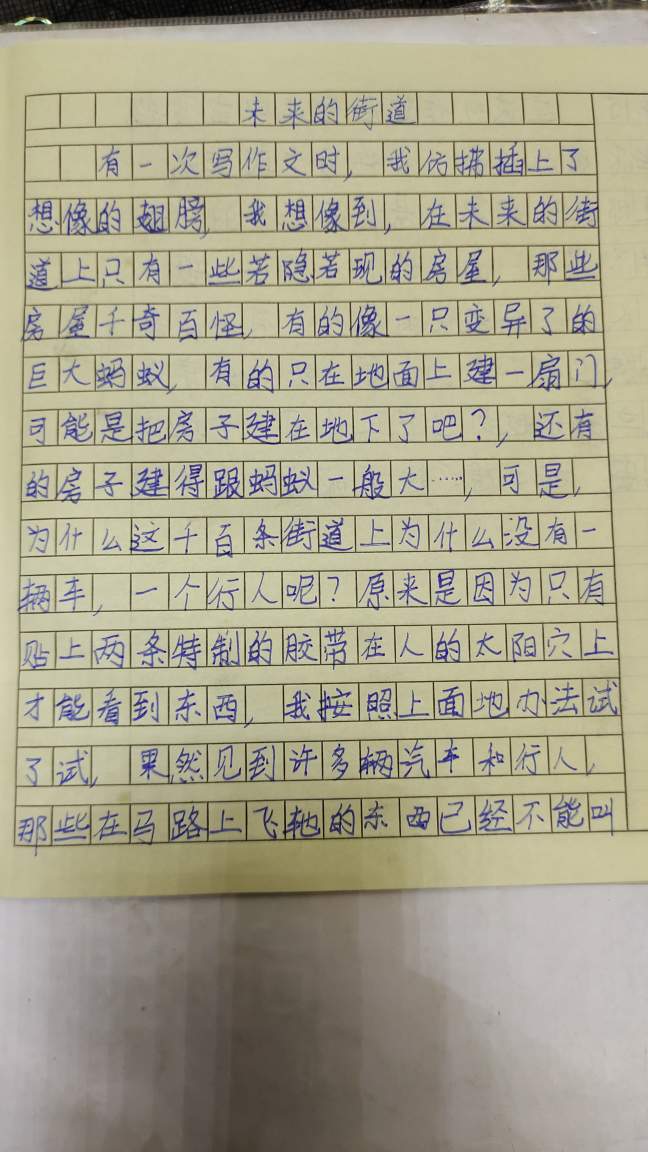 未来的街道
有一次写作文时，我仿拂插上了
想像的翅膀，我想像到，在未来的街
道上只有一些若隐若现的房屋，那些
房屋千奇百怪，有的像一只变异了的
巨大蚂蚁，有的只在地面上建一扇门，
可能是把房子建在地下了吧？，还有
的房子建得跟蚂蚁一般大……，可是，
为什么这千百条街道上为什么没有一
辆车，一个行人呢？原来是因为只有
贴上两条特制的胶带在人的太阳穴上
才能看到东西，我按照上面地办法试
了试，果然见到许多辆汽车和行人，
那些在马路上飞驰的东西已经不能叫